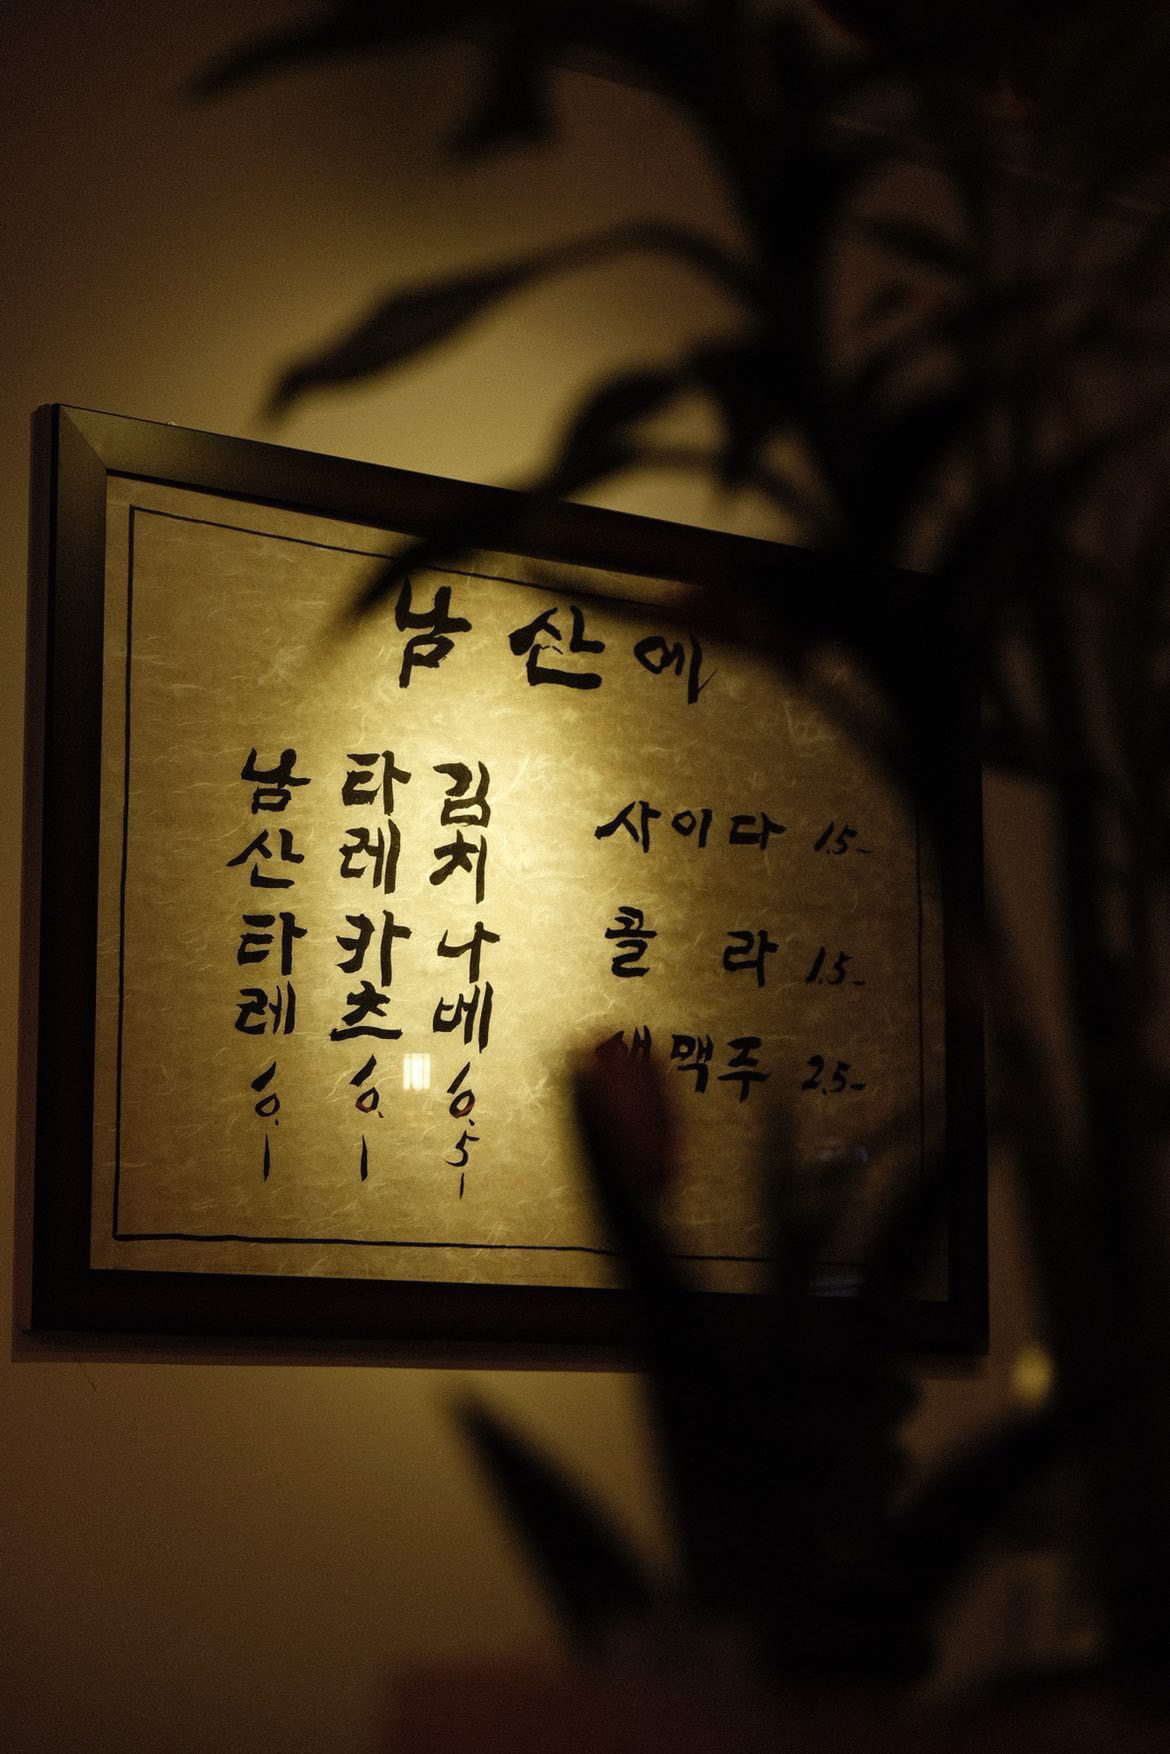 남산에
남산타레 10.1
타레카츠 10.1
김치나베 10.5
사이다 1.5-
콜라 1.5-
맥주 2.5-